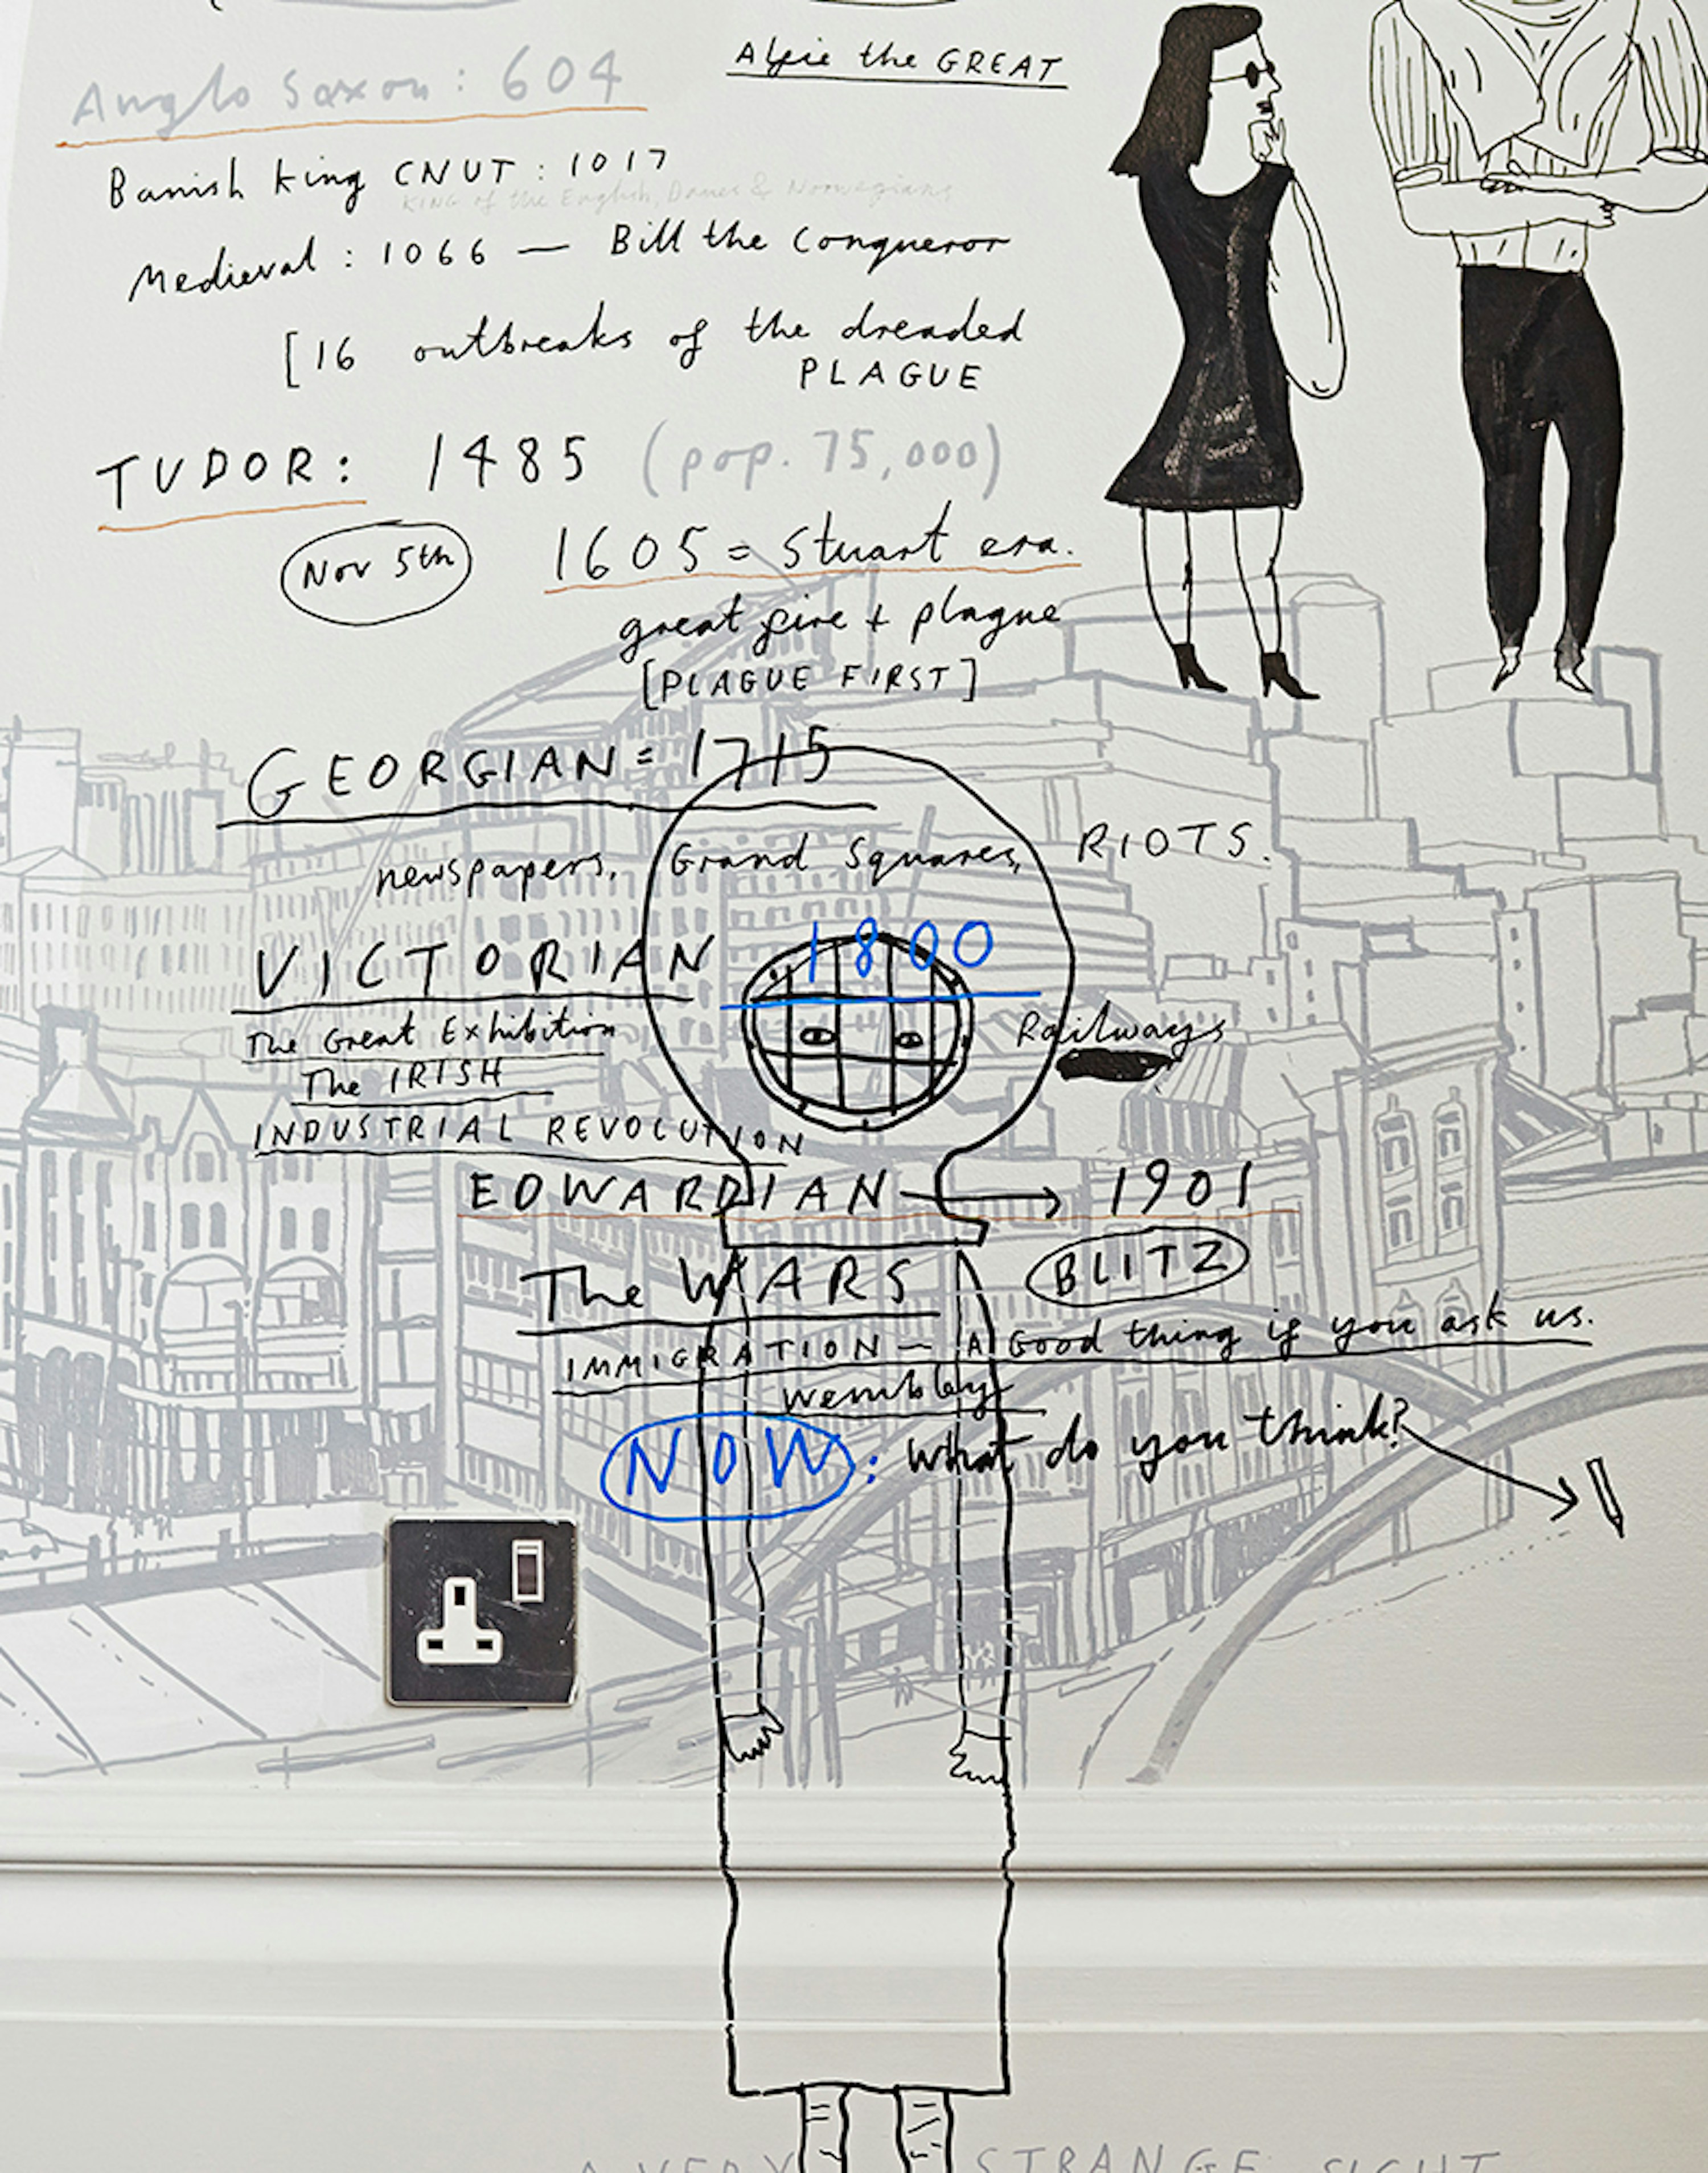 Alfie the GREAT
Anglo Saxon: 604
Banish King CNUT: 1017
KING of the English, Danes & Norwegians
Medieval: 1066 — Bill the Conqueror
[16 outbreaks of the dreaded
PLAGUE
TUDOR: 1485 (pop. 75,000)
Nov 5th 1605 = Stuart era.
great fire + plague
[PLAGUE FIRST]
GEORGIAN = 1715
newspapers, Grand Squares, RIOTS.
VICTORIAN 1800
The Great Exhibition Railways
The IRISH
INDUSTRIAL REVOLUTION
EDWARDIAN → 1901
The WARS BLITZ
IMMIGRATION — A Good thing if you ask us.
Wembley
NOW: What do you think?
A VERY STRANGE SIGHT